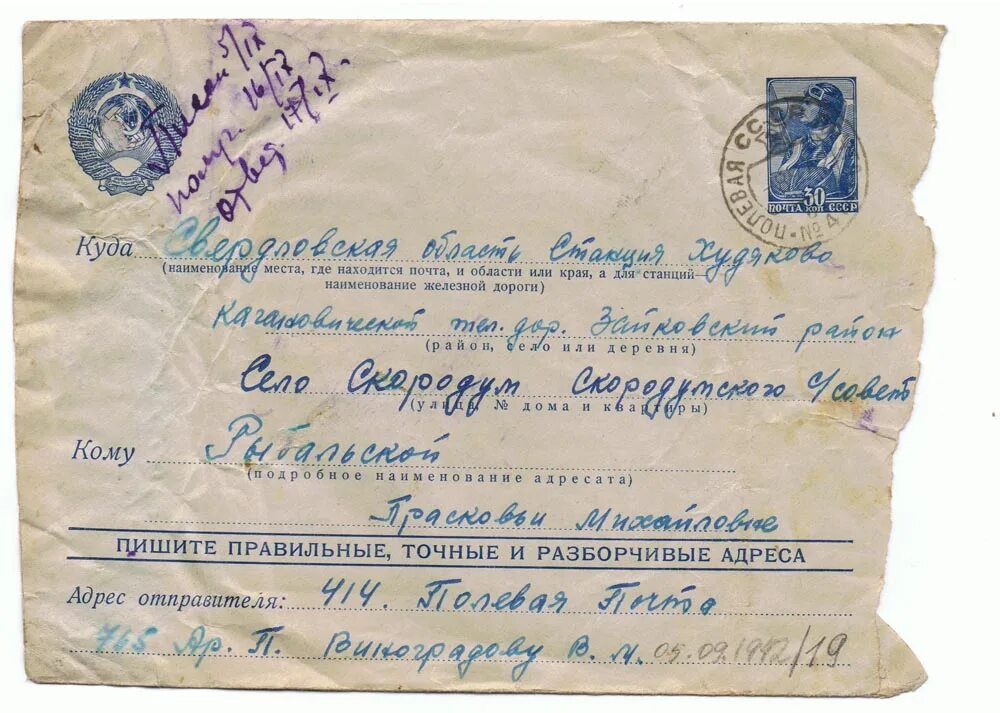 Писал 5/IX
получ. 16/IX
ответ. 17/IX.
30
ПОЧТА КОП СССР
ПОЛЕВАЯ СССР № 4
Куда Свердловская область Станция Худяково
(наименование места, где находится почта, и области или края, а для станций—
наименование железной дороги)
Кагановической жел. дор. Зайковский район
(район, село или деревня)
Село Скородум Скородумского С/совет
(улица, № дома и квартиры)
Кому Рыбальской
(подробное наименование адресата)
Прасковьи Михайловне
ПИШИТЕ ПРАВИЛЬНЫЕ, ТОЧНЫЕ И РАЗБОРЧИВЫЕ АДРЕСА
Адрес отправителя: 414. Полевая Почта
765 Ар. П. Виноградову В. М. 05.09.1942/19